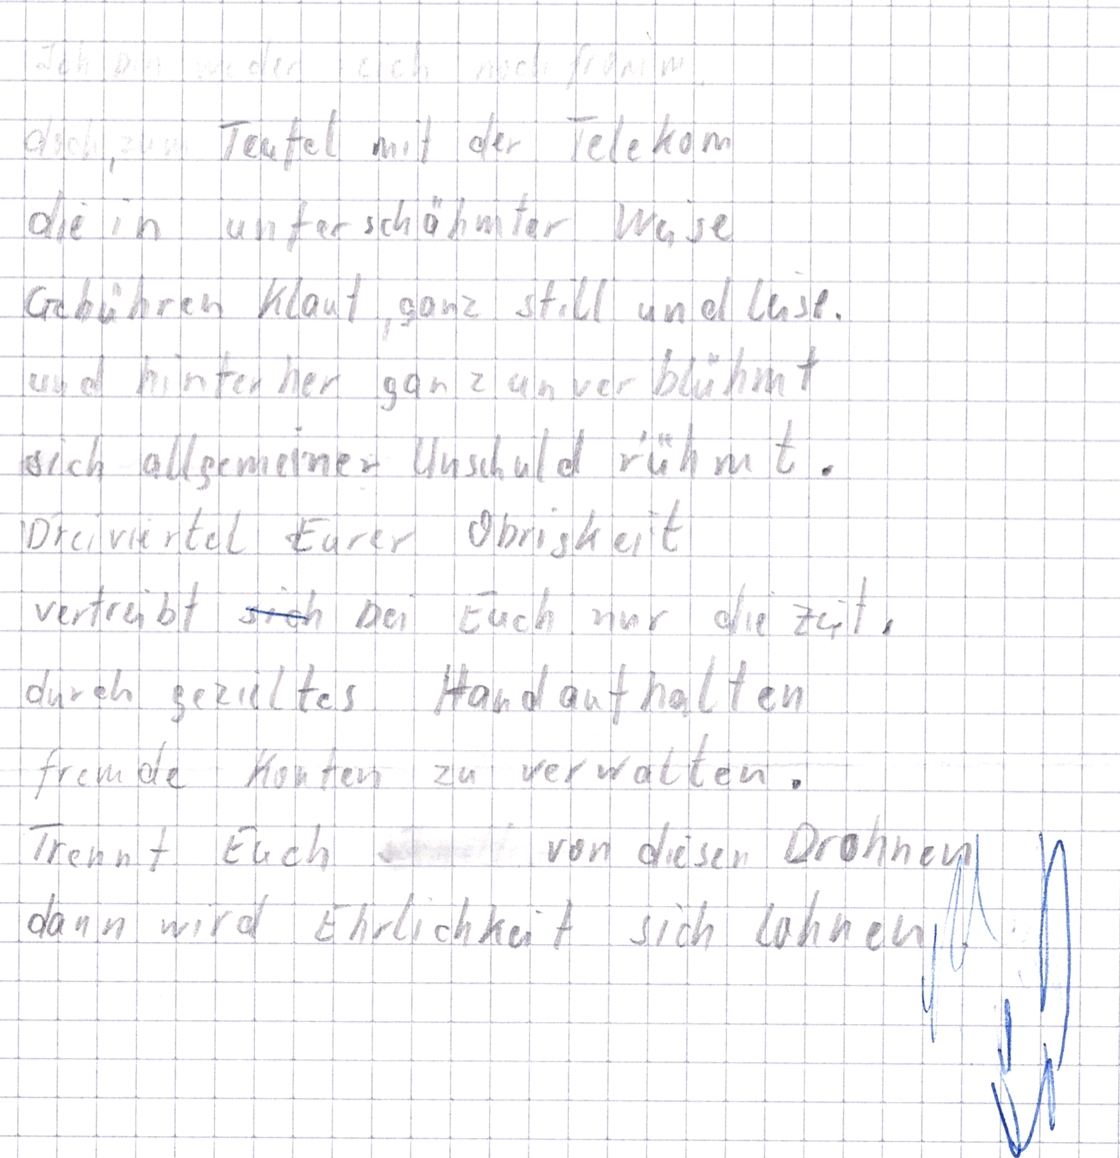 Ich bin weder reich noch fromm,
doch, zum Teufel mit der Telekom
die in unferschähmter Weise
Gebühren klaut, ganz still und leise.
und hinterher ganz unverblühmt
sich allgemeiner Unschuld rühmt.
Dreiviertel Eurer Obrigkeit
vertreibt sich bei Euch nur die Zeit,
durch gezieltes Handaufhalten
fremde Konten zu verwalten.
Trennt Euch von diesen Drohnen
dann wird Ehrlichkeit sich lohnen